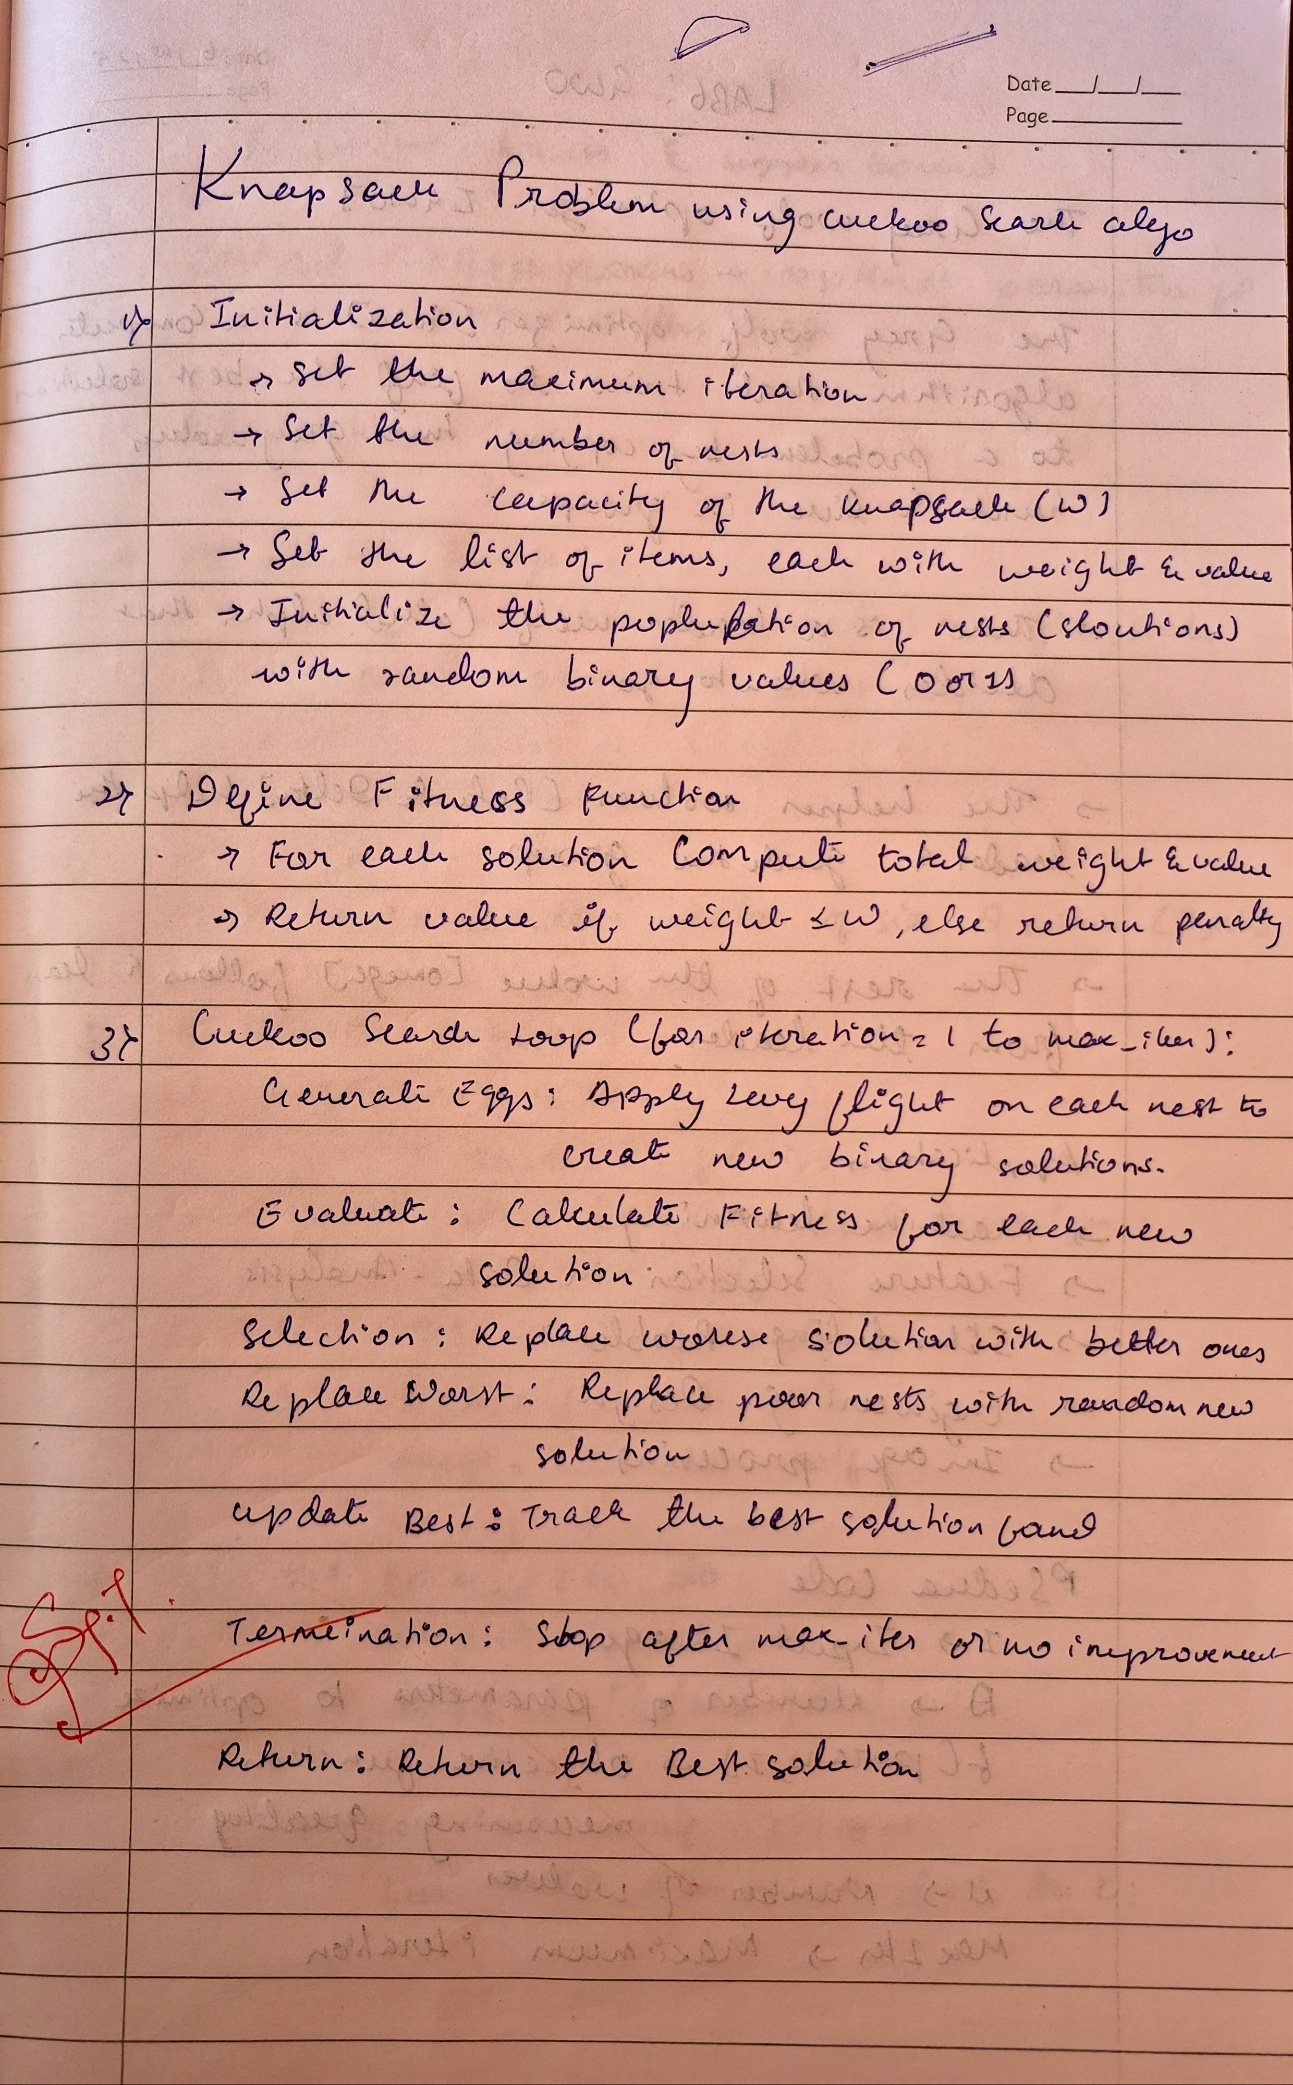 Date __/__/__
Page
Knapsack Problem using cuckoo Search algo
1) Initialization
→ Set the maximum iteration
→ Set the number of nests
→ Set the capacity of the knapsack (W)
→ Set the list of items, each with weight & value
→ Initialize the population of nests (sloutions)
with random binary values (0 or 1)
2) Define Fitness Function
→ For each solution Compute total weight & value
→ Return value if weight ≤ W, else return penalty
3) Cuckoo Search Loop (for iteration = 1 to max_iter):
Generate Eggs: Apply Levy flight on each nest to
create new binary solutions.
Evaluate: Calculate Fitness for each new
solution
Selection: Replace worse solution with better ones
Replace Worst: Replace poor nests with random new
solution
update Best: Track the best solution found
Termeination: Stop after max_iter or no improvement
Return: Return the Best solution